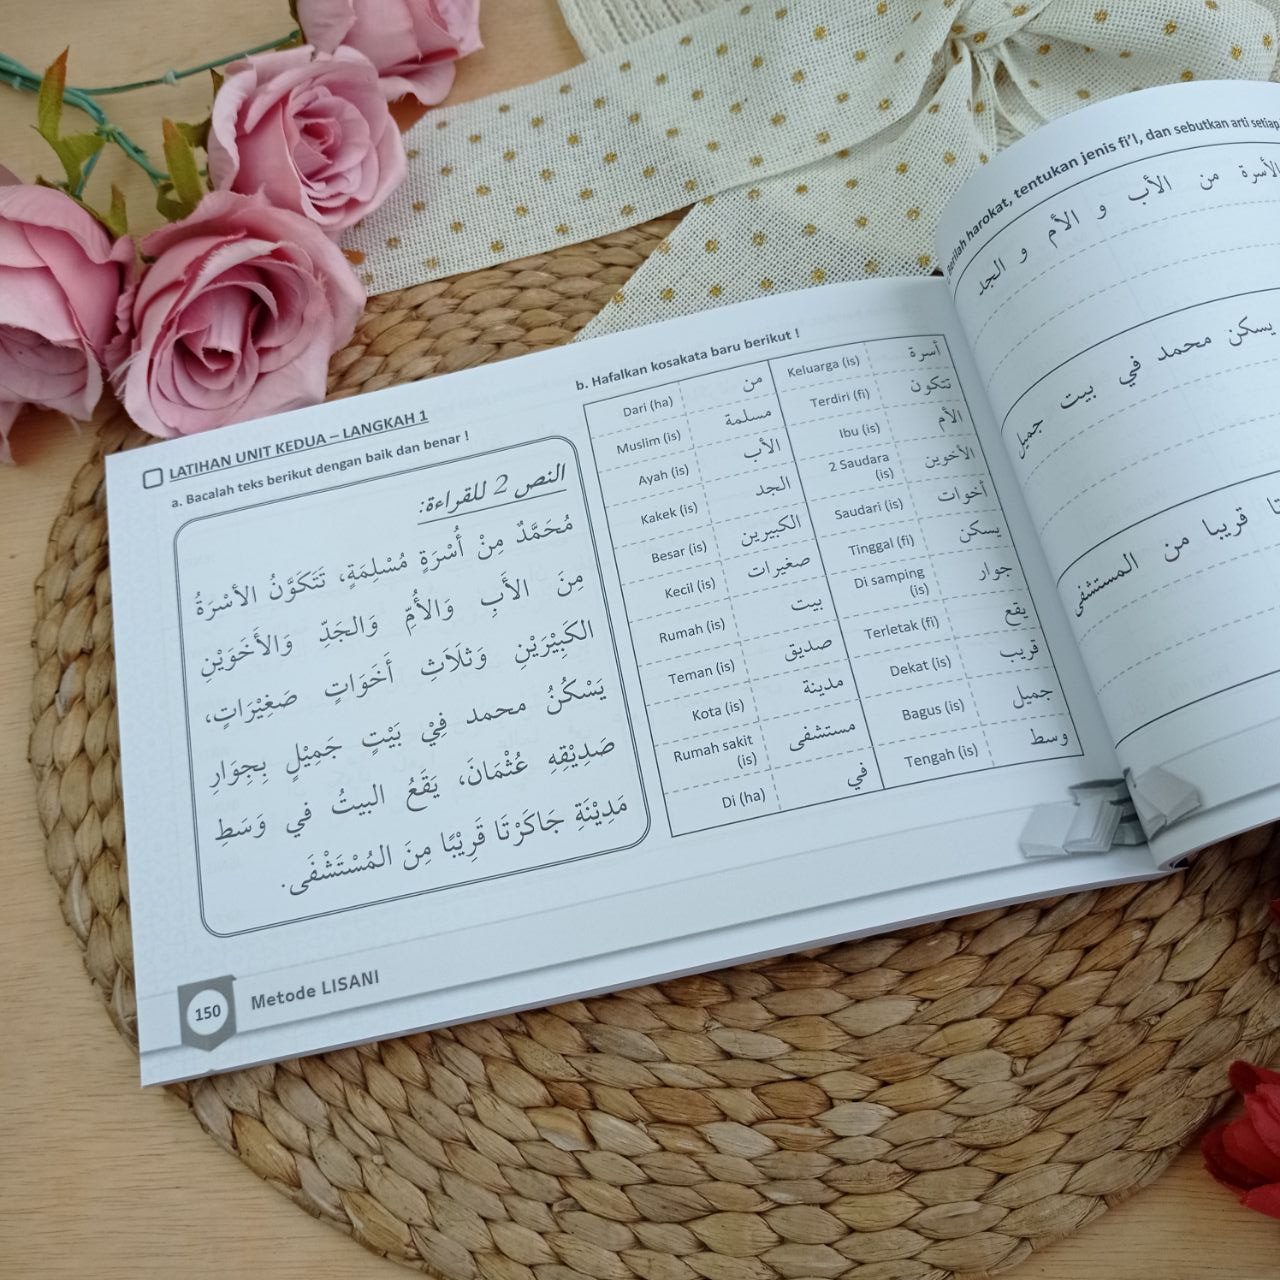 LATIHAN UNIT KEDUA – LANGKAH 1
a. Bacalah teks berikut dengan baik dan benar !
النص 2 للقراءة:
مُحَمَّدٌ مِنْ أُسْرَةٍ مُسْلِمَةٍ، تَتَكَوَّنُ الأسْرَةُ
مِنَ الأَبِ وَالأُمِّ وَالجَدِّ وَالأَخَوَيْنِ
الكَبِيْرَيْنِ وَثلَاَثِ أَخَوَاتٍ صَغِيْرَاتٍ،
يَسْكُنُ محمد فِيْ بَيْتٍ جَمِيْلٍ بِجِوَارِ
صَدِيْقِهِ عُثْمَانَ، يَقَعُ البيتُ في وَسَطِ
مَدِيْنَةِ جَاكَرْتَا قَرِيْبًا مِنَ المُسْتَشْفَى.
b. Hafalkan kosakata baru berikut !
Dari (ha) من Keluarga (is) أسرة
Muslim (is) مسلمة Terdiri (fi) تتكون
Ayah (is) الأب Ibu (is) الأم
Kakek (is) الجد 2 Saudara (is) الأخوين
Besar (is) الكبيرين Saudari (is) أخوات
Kecil (is) صغيرات Tinggal (fi) يسكن
Rumah (is) بيت Di samping (is) جوار
Teman (is) صديق Terletak (fi) يقع
Kota (is) مدينة Dekat (is) قريب
Rumah sakit (is) مستشفى Bagus (is) جميل
Di (ha) في Tengah (is) وسط
150 Metode LISANI
Berilah harokat, tentukan jenis fi'l, dan sebutkan arti setiap
الأسرة من الأب و الأم و الجد
يسكن محمد في بيت جميل
قريبا من المستشفى